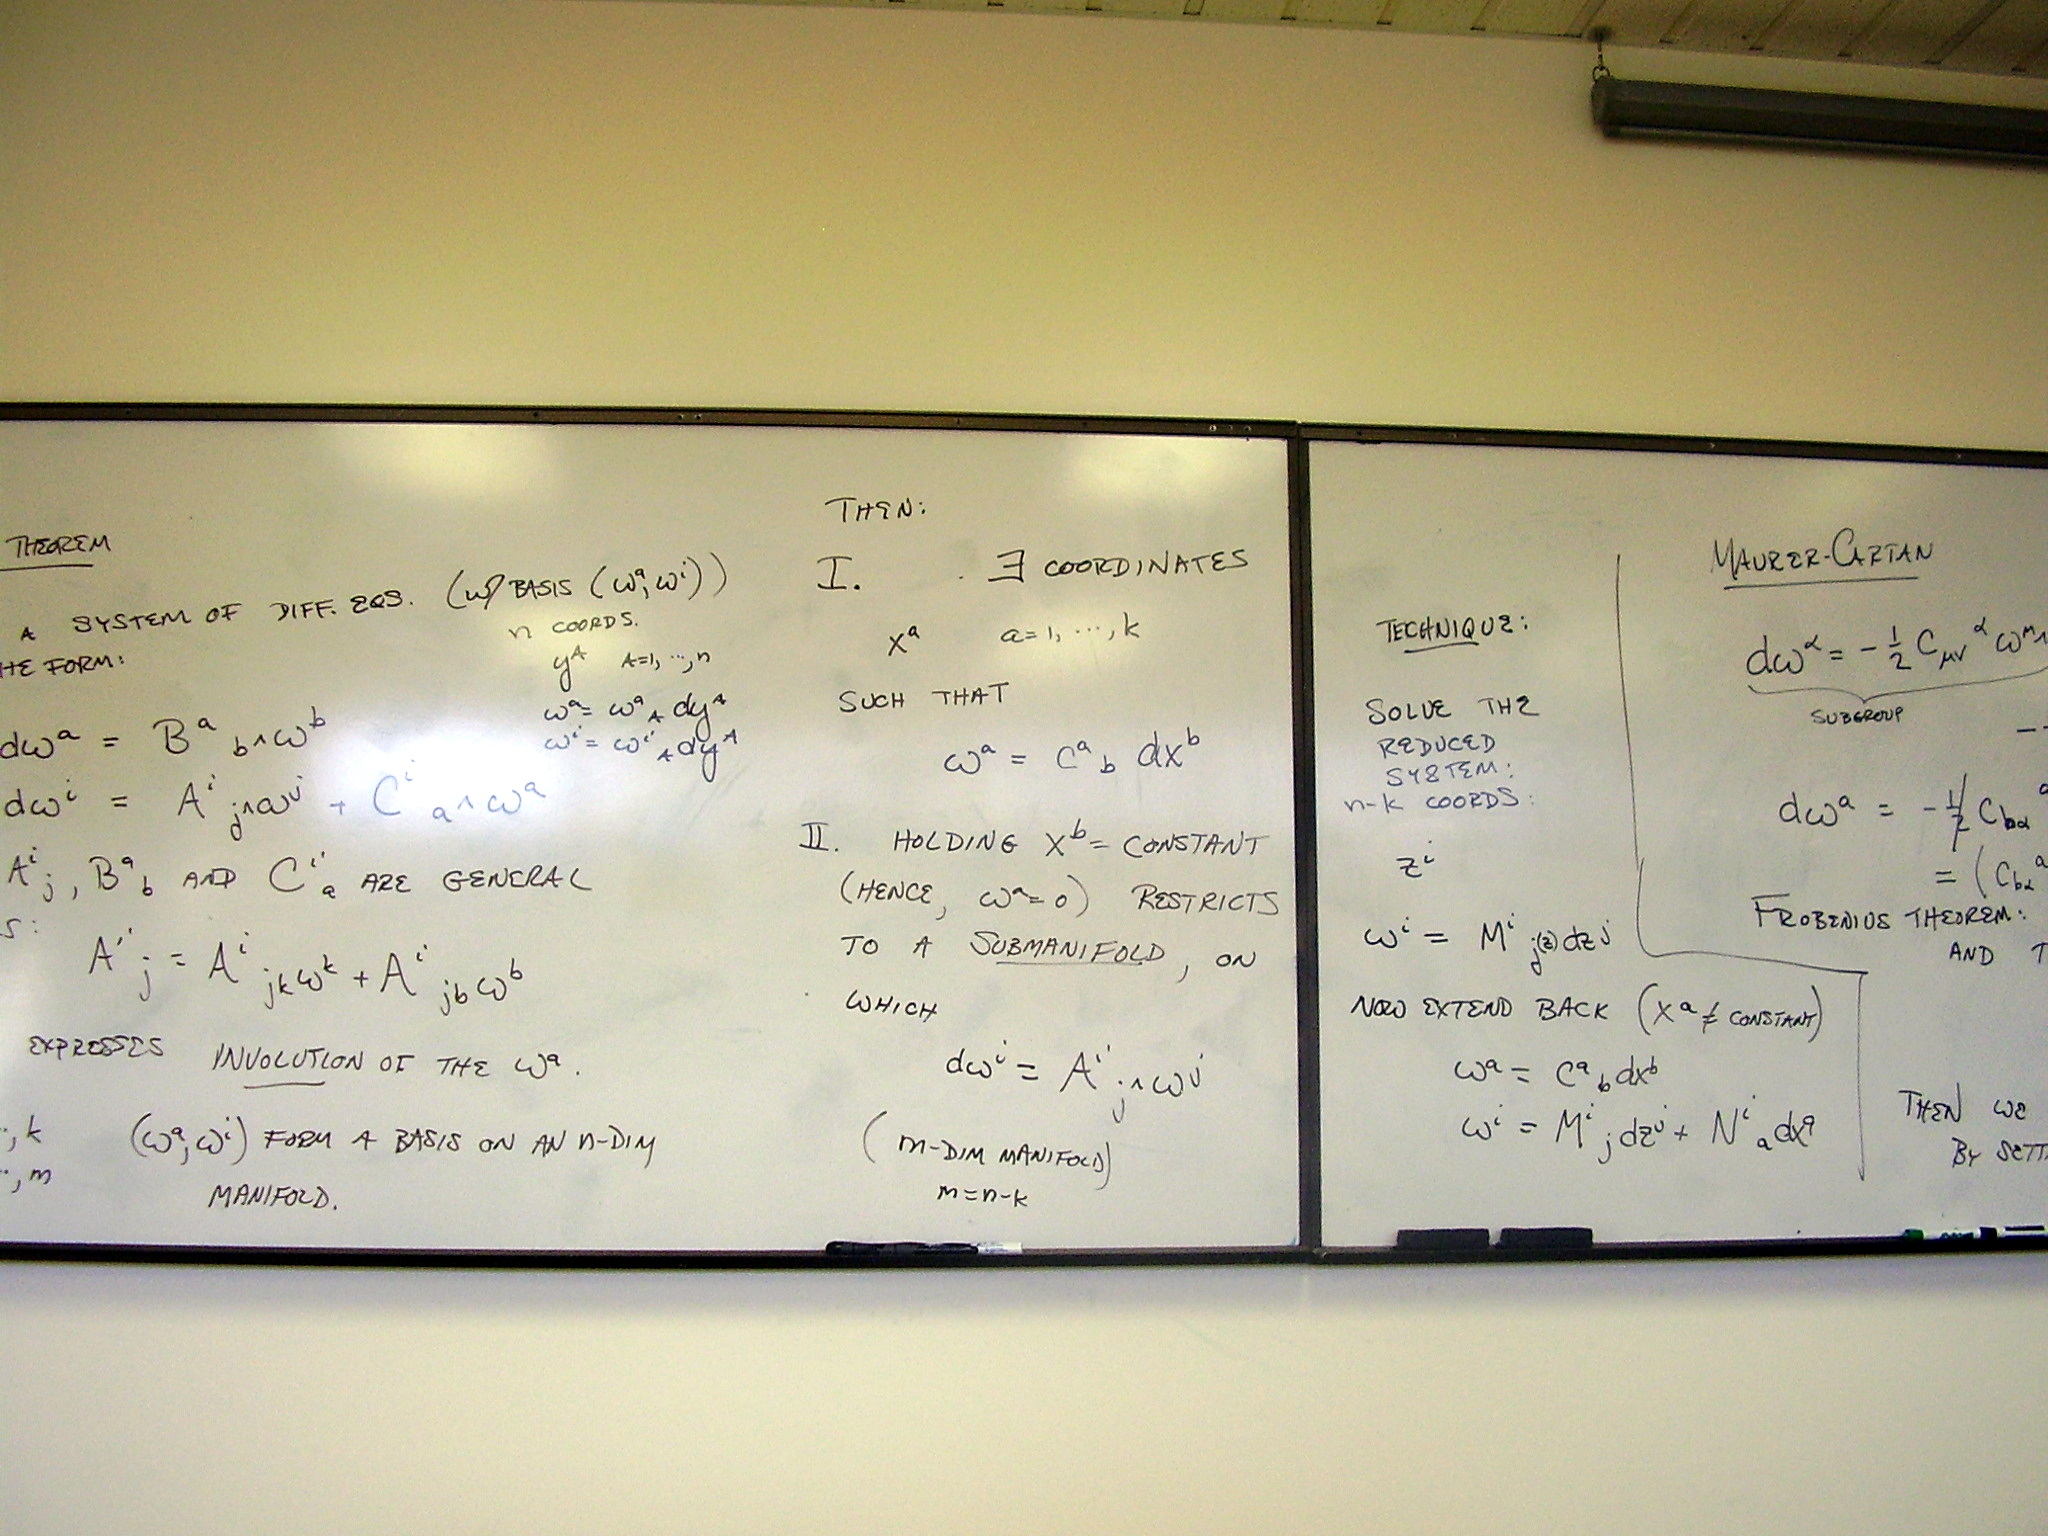 THEOREM
A SYSTEM OF DIFF. EQS. (W/ BASIS (ωᵃ, ωⁱ))
n COORDS.
HE FORM:
yᴬ A=1, ..., n
ωᵃ = ωᵃ_A dyᴬ
ωⁱ = ωⁱ_A dyᴬ
dωᵃ = Bᵃ_b ∧ ωᵇ
dωⁱ = Aⁱ_j ∧ ωʲ + Cⁱ_a ∧ ωᵃ
Aⁱ_j, Bᵃ_b AND Cⁱ_a ARE GENERAL
S:
Aⁱ_j = Aⁱ_jk ωᵏ + Aⁱ_jb ωᵇ
EXPRESSES INVOLUTION OF THE ωᵃ.
.., k
.., m
(ωᵃ, ωⁱ) FORM A BASIS ON AN n-DIM
MANIFOLD.
THEN:
I. ∃ COORDINATES
xᵃ a=1, ..., k
SUCH THAT
ωᵃ = Cᵃ_b dxᵇ
II. HOLDING xᵇ = CONSTANT
(HENCE, ωᵃ=0) RESTRICTS
TO A SUBMANIFOLD, ON
WHICH
dωⁱ = Aⁱ_j ∧ ωʲ
(m-DIM MANIFOLD)
m=n-k
TECHNIQUE:
SOLVE THE
REDUCED
SYSTEM:
n-k COORDS:
zⁱ
ωⁱ = Mⁱ_j(z) dzʲ
NOW EXTEND BACK (xᵃ ≠ CONSTANT)
ωᵃ = Cᵃ_b dxᵇ
ωⁱ = Mⁱ_j dzʲ + Nⁱ_a dxᵃ
MAURER-CARTAN
dω^α = -½ C_μν^α ω^μ ∧
SUBGROUP
dωᵃ = -½ C_bα^a
= (C_bα^a
FROBENIUS THEOREM:
AND T
THEN WE
BY SETT